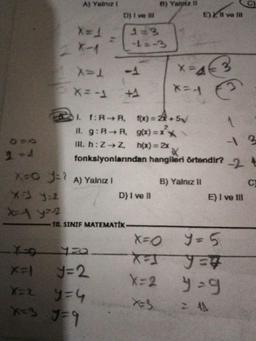 A) Yalnız I
B) Yalnız II
C)
D) I ve III
E) II ve III
x=1
x=-1
=
1=3
-1=-3
x=1 -1
x=-1 +1
x=1 3
x=-1
I. f: R→R, f(x) = 2x + 5
II. g: R→R, g(x) = x²
III. h: Z→Z, h(x) = 2x
fonksiyonlarından hangileri örtendir?
x=0 y=1
x=1 y=2
A) Yalnız I
B) Yalnız II
C)
D) I ve II
E) I ve III
10. SINIF MATEMATİK
x=0 y=0
x=1 y=2
x=2 y=4
x=3 y=9
x=0 y=5
x=1 y=7
x=2 y=9
x=3 = 11